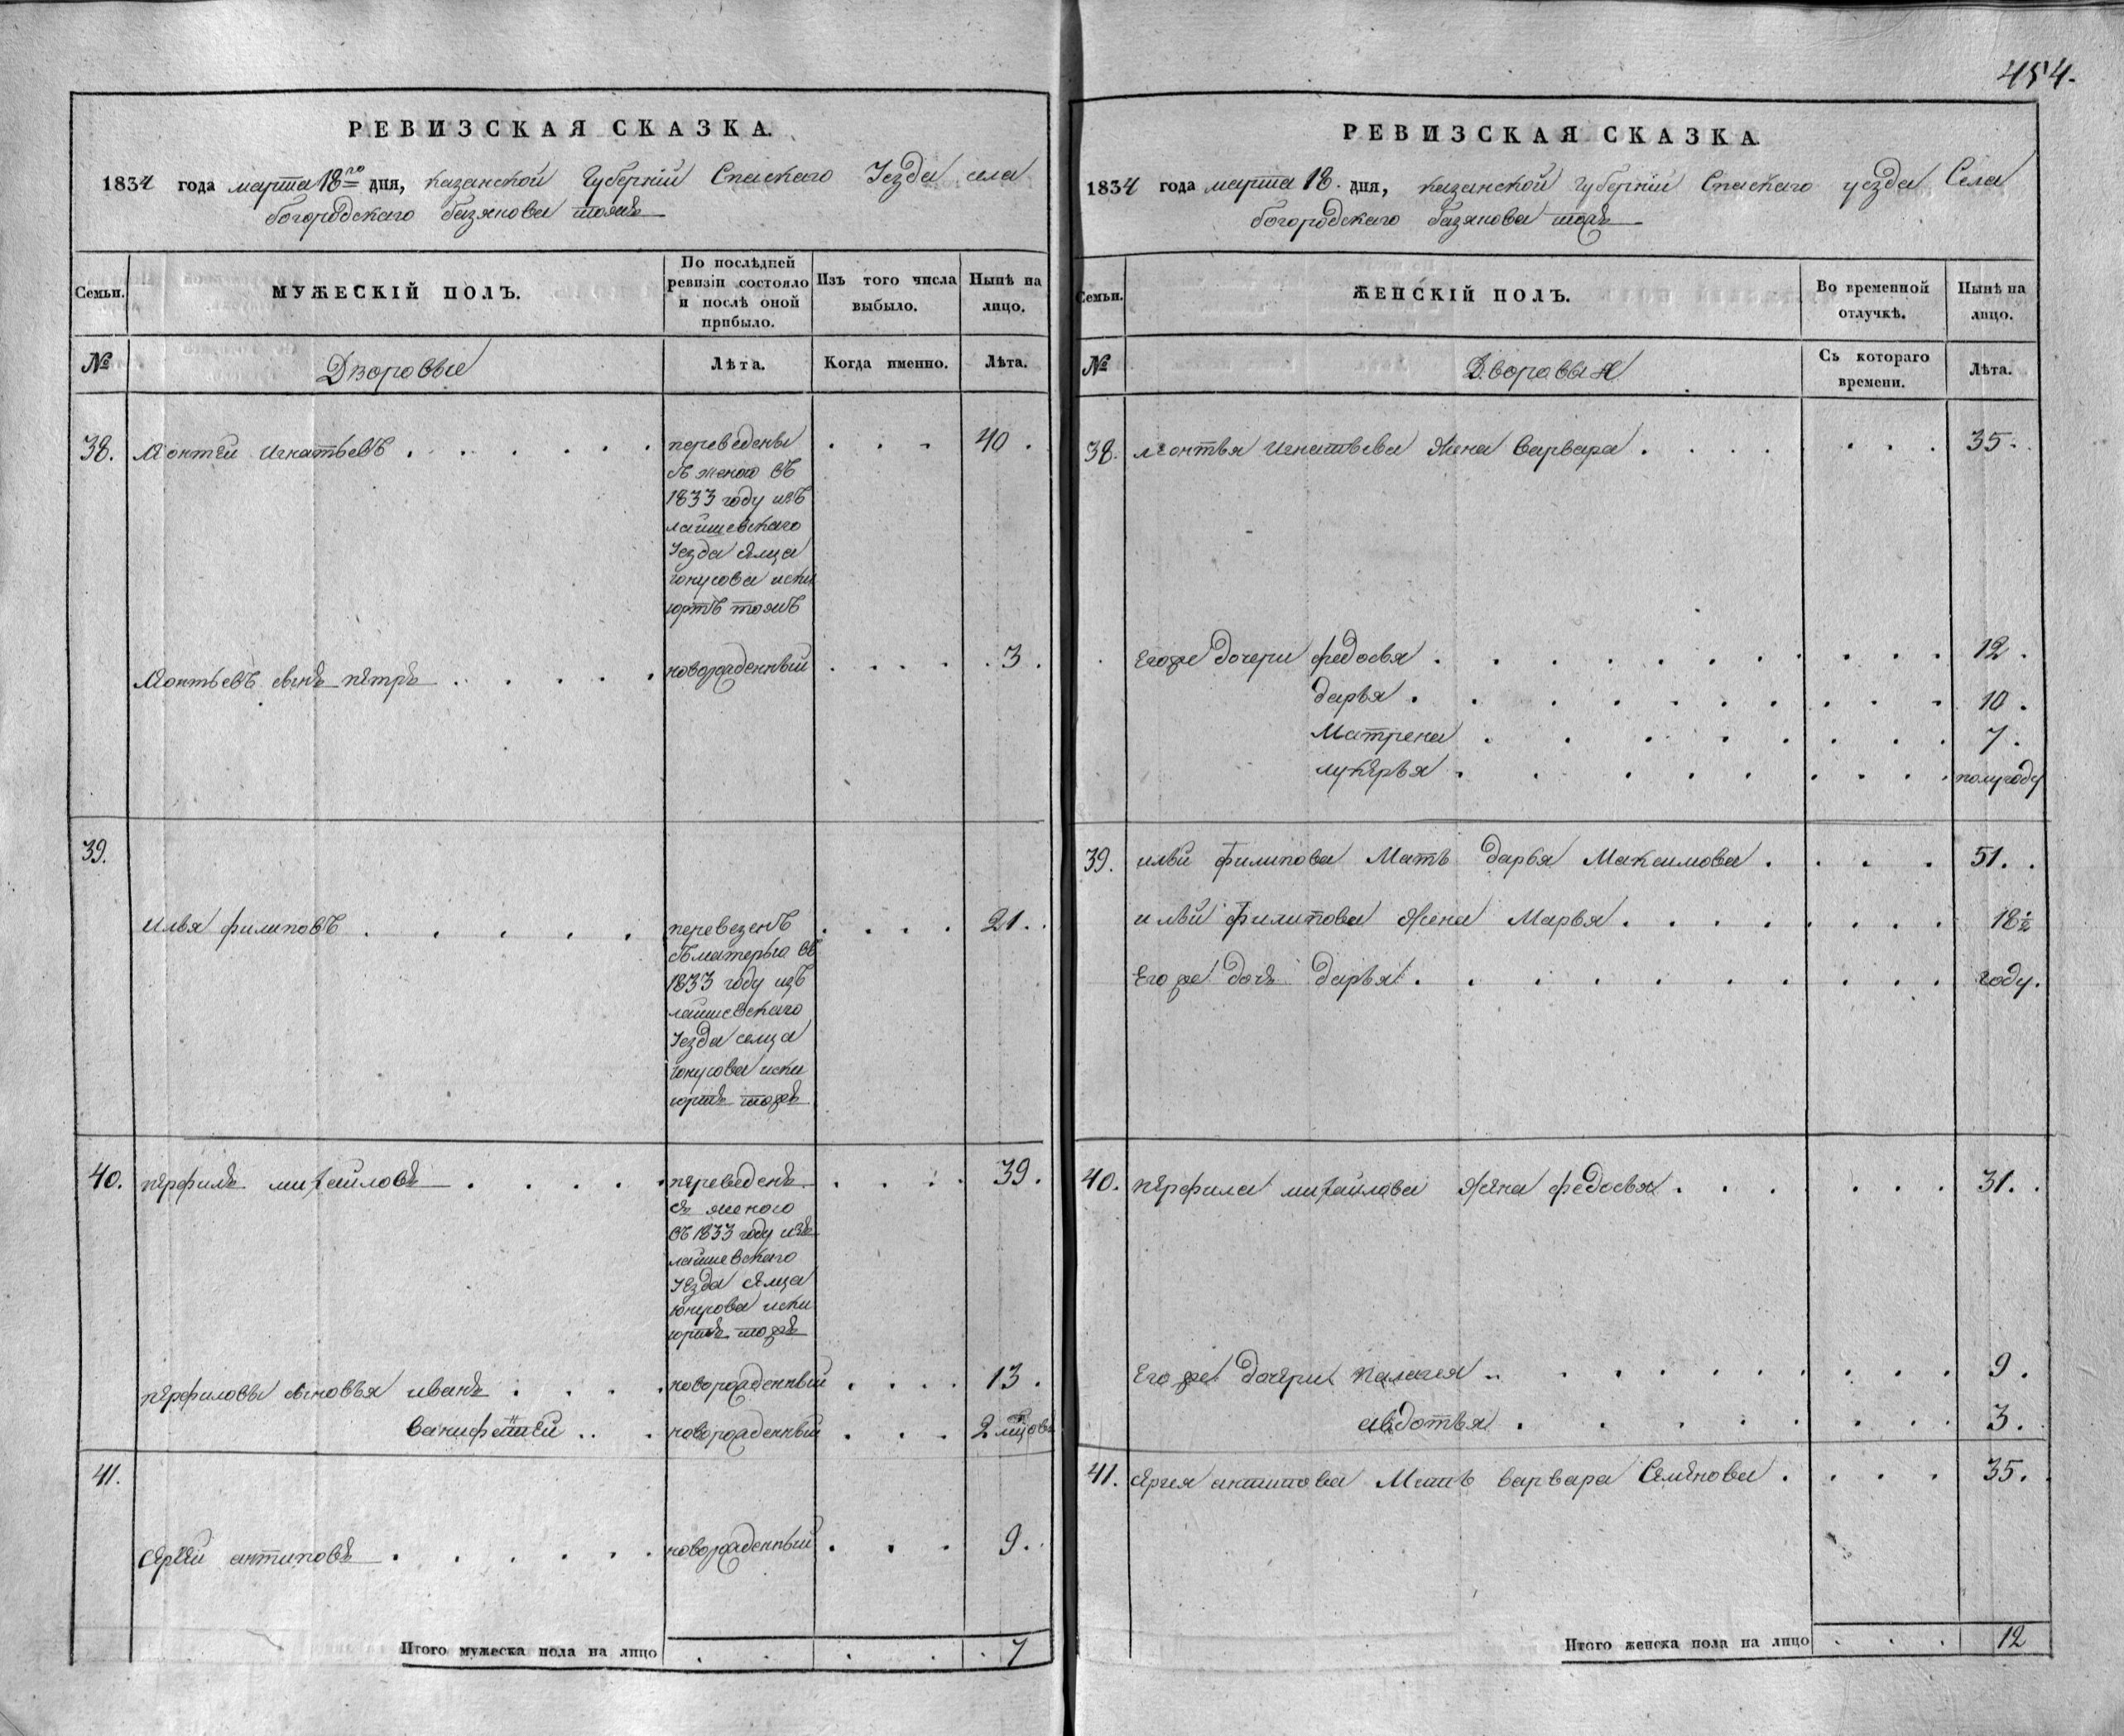 454.
РЕВИЗСКАЯ СКАЗКА.
1834 года марта 18го дня, казанской Губернiи Спаскаго Уезда села
богородскаго базянова тожъ
Семьи. МУЖЕСКІЙ ПОЛЪ. По послѣдней ревизіи состояло и послѣ оной прибыло. Изъ того числа выбыло. Нынѣ на лицо.
№ Дворовые Лѣта. Когда именно. Лѣта.
38. Леонтей игнатьевъ переведены 40.
съ женою въ
1833 году изъ
лаишевскаго
Уезда селца
юнусова иски
юртъ тожъ
Леонтьевъ сынъ петръ новорожденный 3.
39.
Илья филиповъ перевезенъ 21.
съ матерью въ
1833 году изъ
лаишевскаго
Уезда селца
юнусова иски
юртъ тожъ
40. перфилъ михайловъ переведенъ 39.
съ женою
въ 1833 году изъ
лаишевскаго
Уезда селца
юнусова иски
юртъ тожъ
перфиловы сыновья иванъ новорожденный 13.
новорожденный 2
41.
сергей антиповъ новорожденный 9.
Итого мужеска пола на лицо 7
РЕВИЗСКАЯ СКАЗКА
1834 года марта 18. дня, казанской губернiи Спаскаго уезда Села
богородскаго базянова тожъ
Семьи. ЖЕНСКІЙ ПОЛЪ. Во временной отлучкѣ. Нынѣ на лицо.
№ Дворовыя Съ котораго времени. Лѣта.
38. леонтья игнатьева Жена варвара 35.
Егоже дочери федосья 12.
дарья 10.
Матрена 7.
лукерья полугоду
39. ильи филипова Мать дарья Максимова 51.
ильи филипова Жена Марья 18½
Егоже дочь дарья году.
40. перфила михайлова Жена федосья 31.
Егоже дочери палагея 9.
авдотья 3.
41. сергея антипова Мать варвара Семенова 35.
Итого женска пола на лицо 12